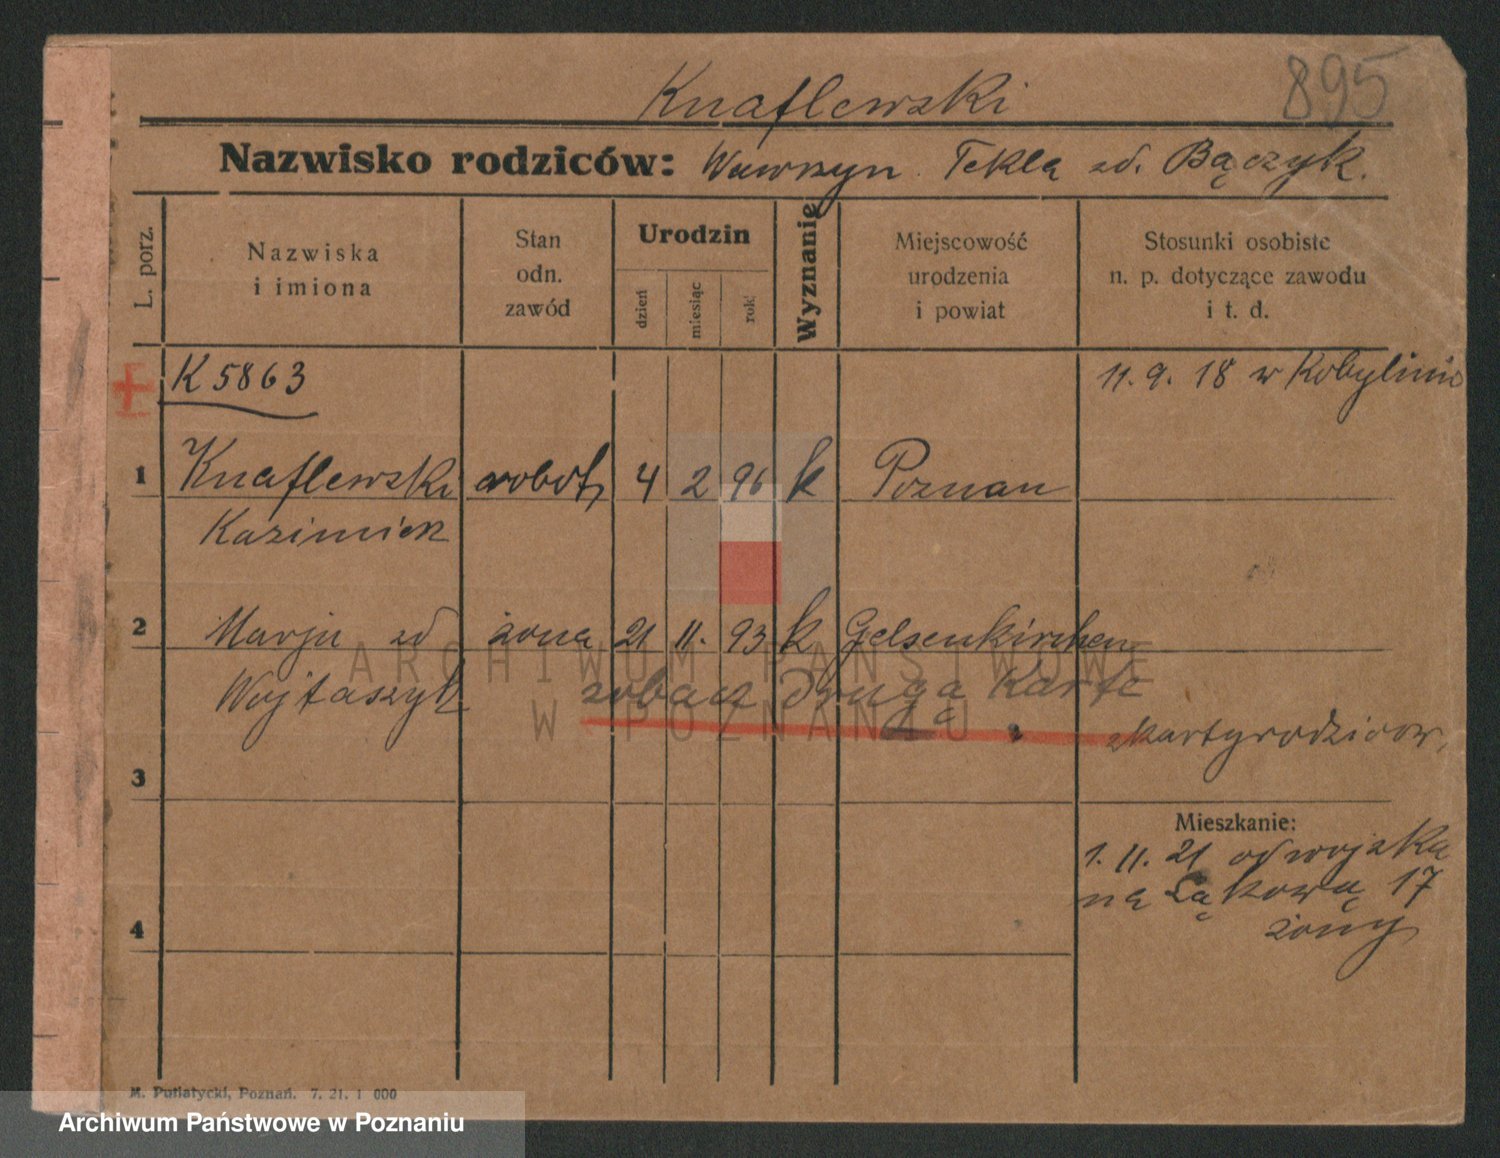 895
Knaflewski
Nazwisko rodziców: Wawrzyn. Tekla zd. Bączyk.
L. porz.
Nazwiska
i imiona
Stan
odn.
zawód
Urodzin
dzień
miesiąc
rok
Wyznanie
Miejscowość
urodzenia
i powiat
Stosunki osobiste
n. p. dotyczące zawodu
i t. d.
K 5863
11. 9. 18 w Kobylinie
1 Knaflewski robotn 4 2 96 k Poznan
Kazimierz
2 Marja zd żona 21 11. 93 k Gelsenkirchen
Wojtaszyk zobacz drugą kartę
z karty rodziców.
3
Mieszkanie:
1. 11. 21 od wojska
na Łąkową 17
żony
4
M. Putiatycki, Poznań. 7. 21. 1 000
ARCHIWUM PAŃSTWOWE
W POZNANIU
Archiwum Państwowe w Poznaniu